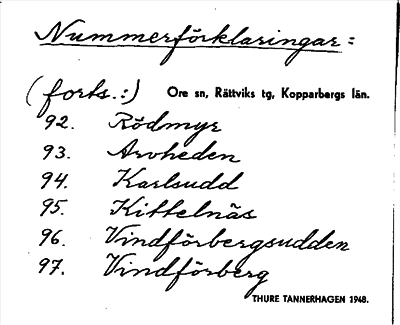 Nummerförklaringar:
(forts.:) Ore sn, Rättviks tg, Kopparbergs län.
92. Rödmyr
93. Arvheden
94. Karlsudd
95. Kittelnäs
96. Vindförbergsudden
97. Vindförberg
THURE TANNERHAGEN 1948.